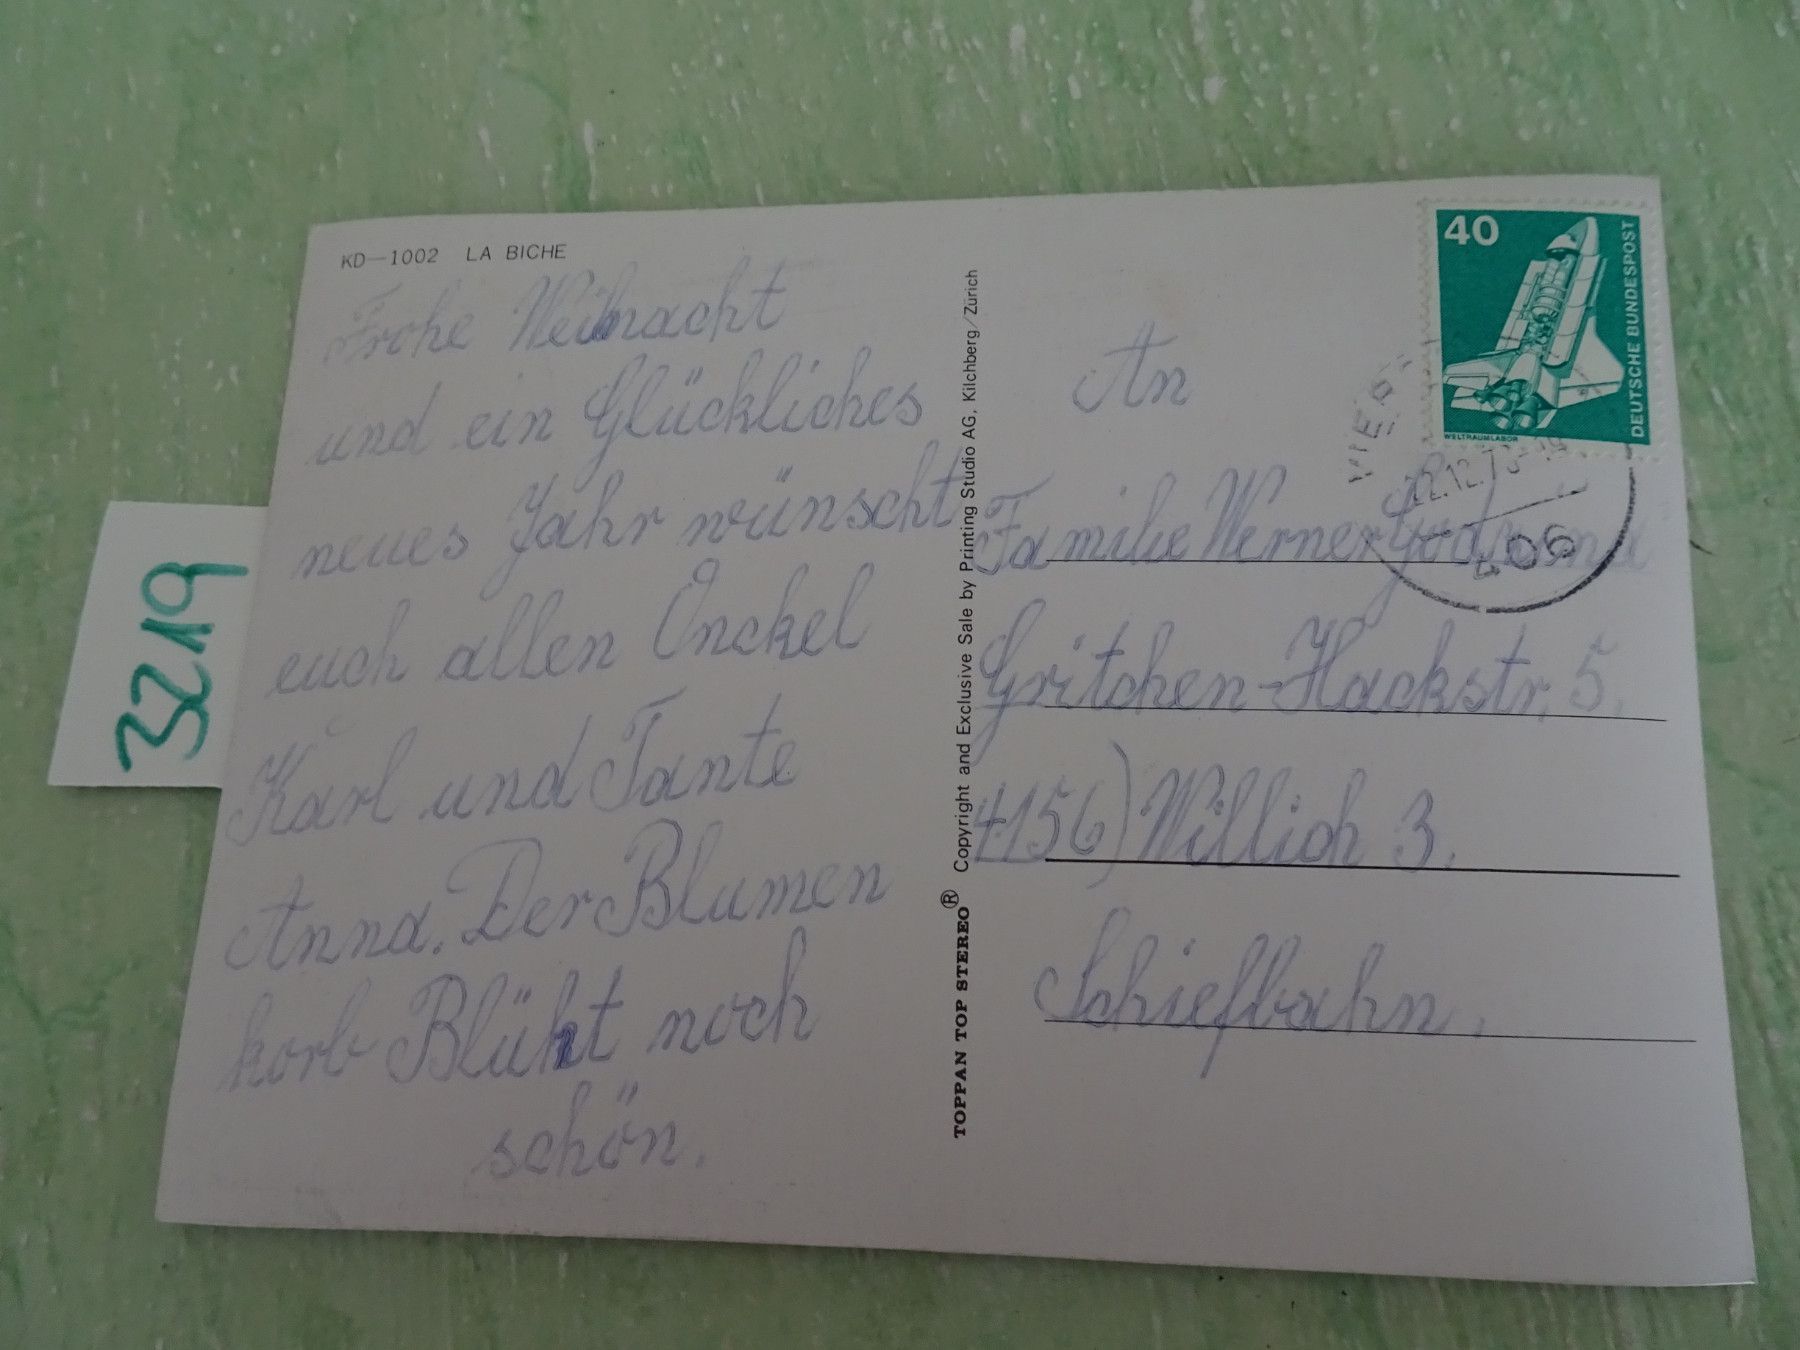 KD—1002 LA BICHE
Frohe Weihnacht
und ein Glückliches
neues Jahr wünscht
euch allen Onckel
Karl und Tante
Anna. Der Blumen
korb Blüht noch
schön.
Copyright and Exclusive Sale by Printing Studio AG, Kilchberg/Zürich
TOPPAN TOP STEREO®
40
DEUTSCHE BUNDESPOST
WELTRAUMLABOR
22.12.7
406
An
Familie Werner
Gritchen-Hackstr. 5.
4156) Willich 3.
Schiefbahn.
3219